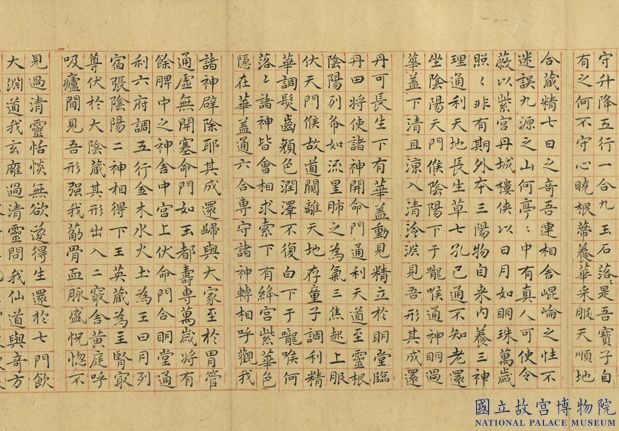 守升降五行一合九玉石落〻是吾寶子自
有之何不守心曉根蒂養華采服天順地
合蔵精七日之奇吾連相舍崐崘之性不
迷誤九源之山何亭〻中有真人可使令
蔽以紫宮丹城樓俠以日月如明珠萬歲
照〻非有期外本三陽物自来内養三神
理通利天地長生草七孔已通不知老還
坐陰陽天門候陰陽下于嚨喉通神明過
華盖下清且涼入清泠淵見吾形其成還
丹可長生下有華盖動見精立於明堂臨
丹田将使諸神開命門通利天道至靈根
陰陽列㪚如流星肺之為氣三焦起上服
伏天門候故道闚離天地存童子調利精
華調髮齒顔色潤澤不復白下于嚨喉何
落〻諸神皆會相求索下有絳宮紫華色
隱在華盖通六合專守諸神轉相呼觀我
諸神辟除耶其成還歸與大家至於胃管
通虚無閉塞命門如玉都壽專萬歲将有
餘脾中之神舎中宮上伏命門合明堂通
利六府調五行金木水火土為王日月列
宿張陰陽二神相得下玉英蔵為主腎冣
尊伏於大陰蔵其形出入二竅舎黄庭呼
吸廬間見吾形强我筋骨血脉盛怳惚不
見過清靈恬惔無欲遂得生還於七門飲
大淵道我玄廱過清靈問我仙道與奇方
國立故宮博物院
NATIONAL PALACE MUSEUM